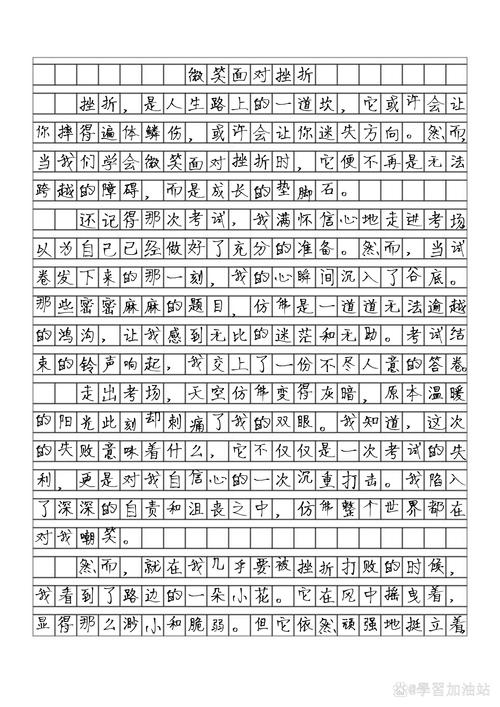 微笑面对挫折
挫折，是人生路上的一道坎，它或许会让
你摔得遍体鳞伤，或许会让你迷失方向。然而，
当我们学会微笑面对挫折时，它便不再是无法
跨越的障碍，而是成长的垫脚石。
还记得那次考试，我满怀信心地走进考场
以为自己已经做好了充分的准备。然而，当试
卷发下来的那一刻，我的心瞬间沉入了谷底。
那些密密麻麻的题目，仿佛是一道道无法逾越
的鸿沟，让我感到无比的迷茫和无助。考试结
束的铃声响起，我交上了一份不尽人意的答卷。
走出考场，天空仿佛变得灰暗，原本温暖
的阳光此刻却刺痛了我的双眼。我知道，这次
的失败意味着什么，它不仅仅是一次考试的失
利，更是对我自信心的一次沉重打击。我陷入
了深深的自责和沮丧之中，仿佛整个世界都在
对我嘲笑。
然而，就在我几乎要被挫折打败的时候，
我看到了路边的一朵小花。它在风中摇曳着，
显得那么渺小和脆弱。但它依然顽强地挺立着
@學習加油站